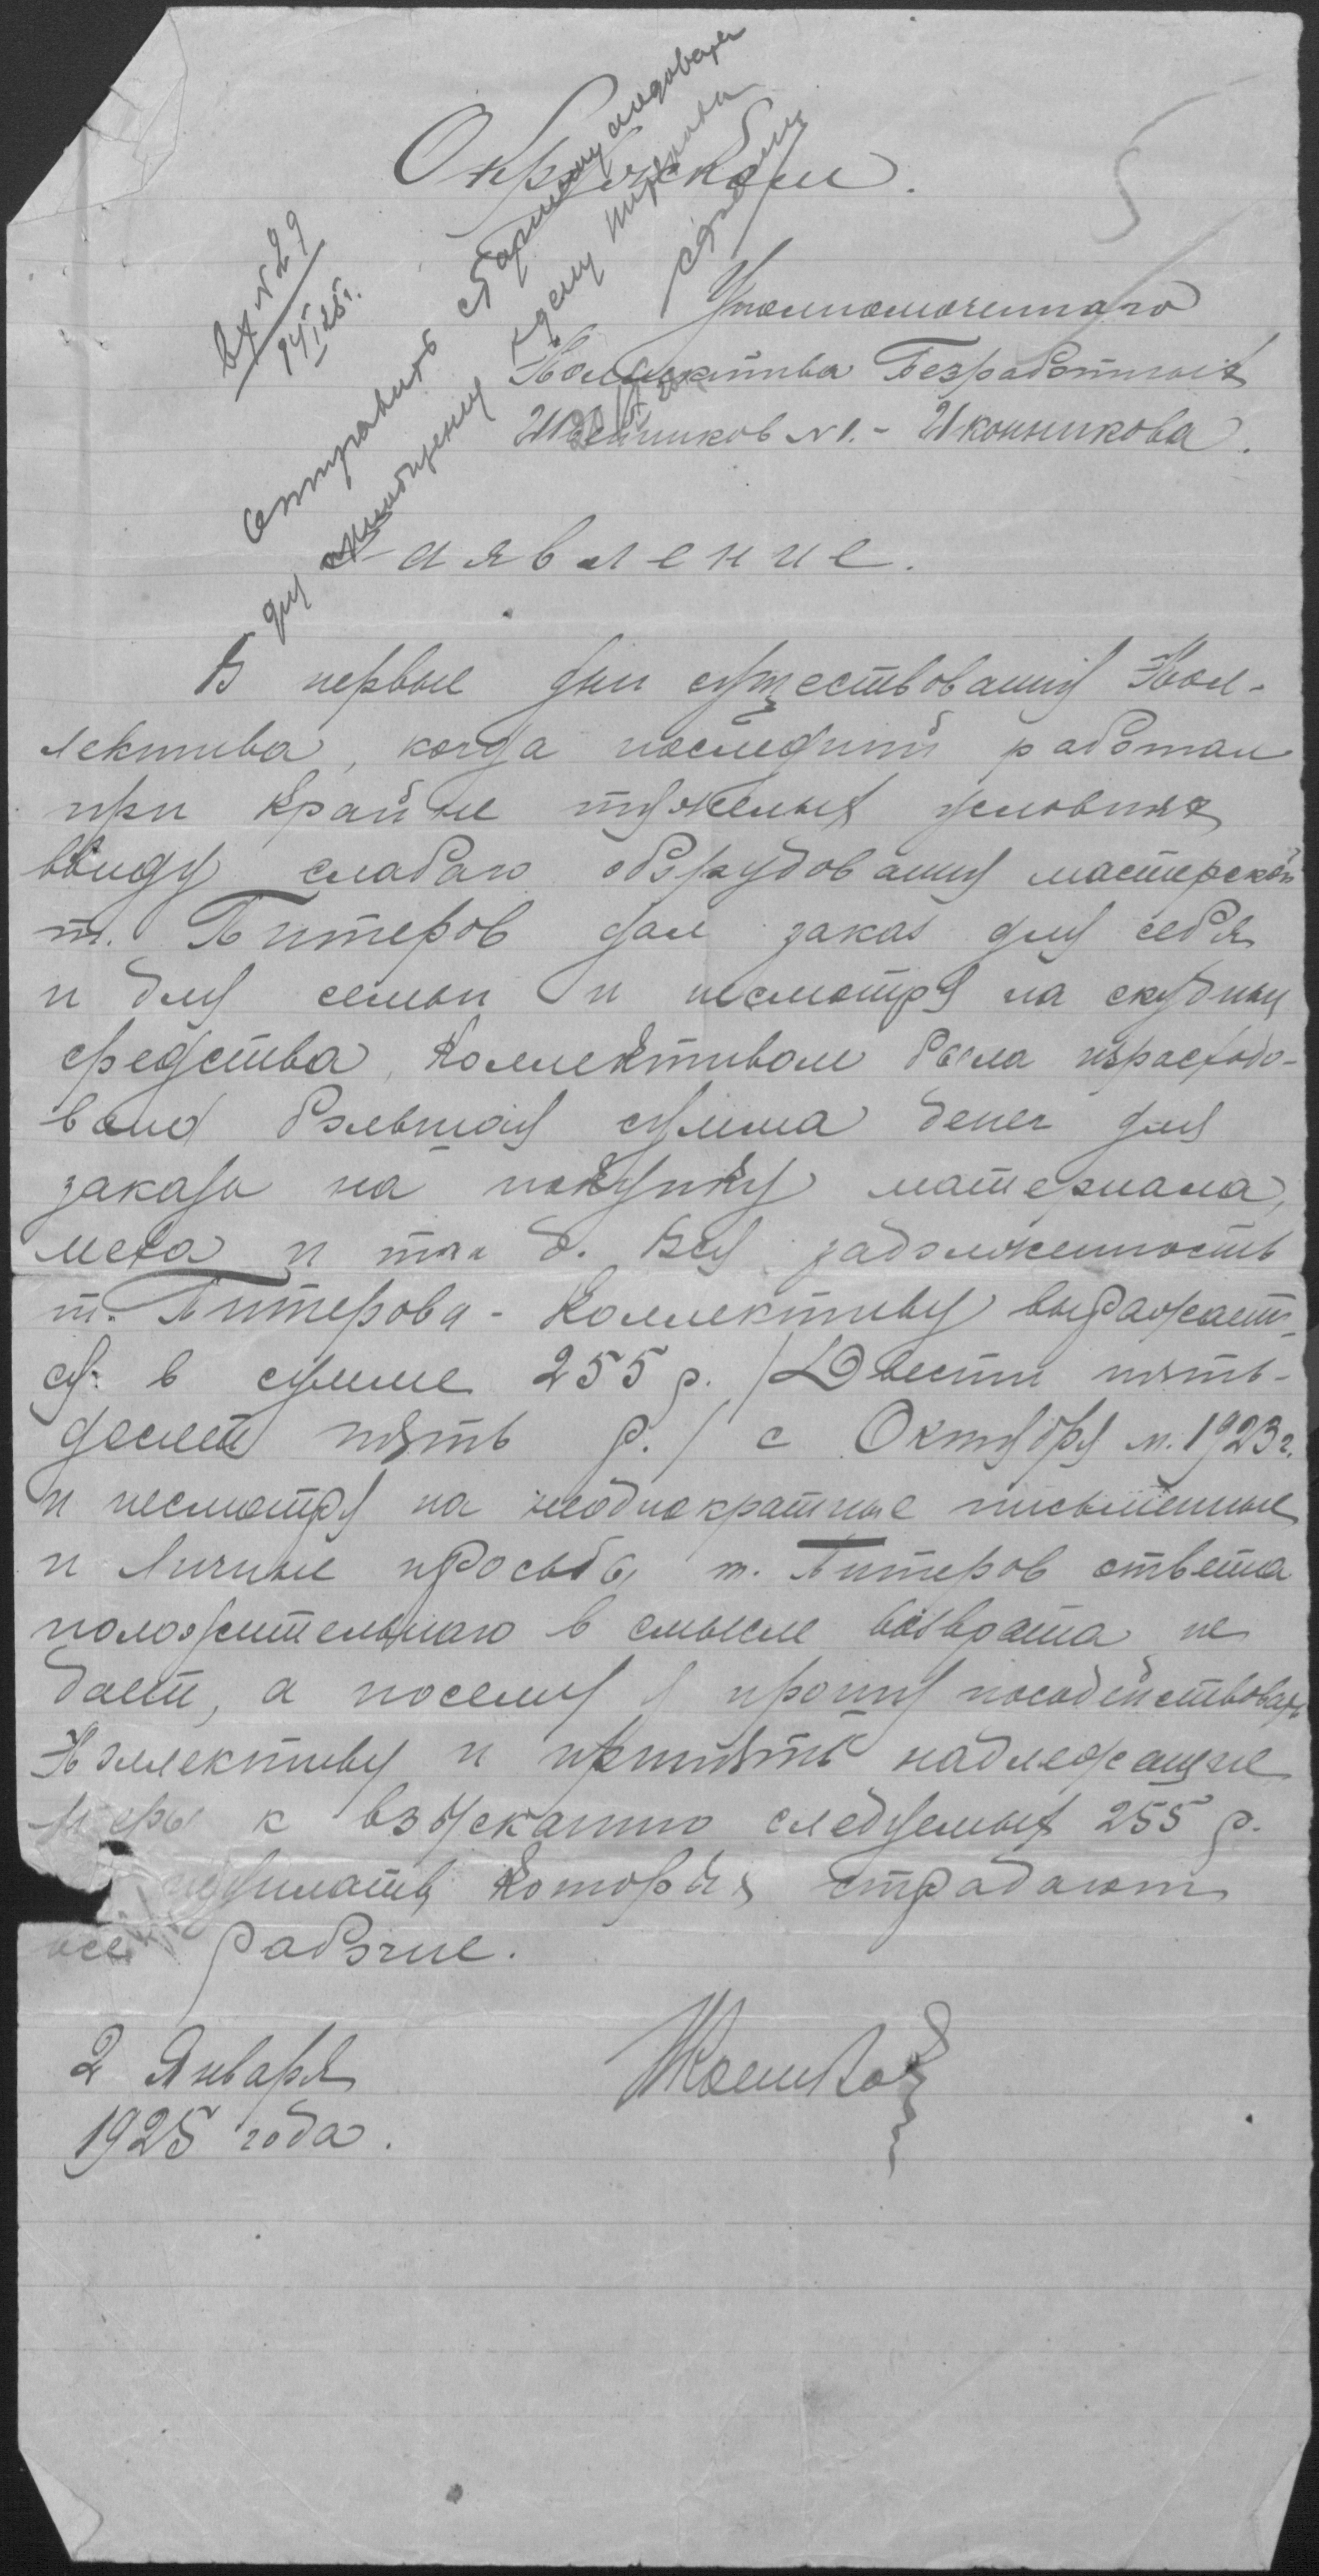 5
Окружкому.
Вх N 29
14/I 25 г.
Отправить старшему следователю
для приобщения к делу Питерова
Уполномоченного
Коллектива Безработных
Швейников N 1. - Иконникова.
Заявление.
В первые дни существования Кол-
лектива, когда последний работал
при крайне тяжелых условиях
ввиду слабаго оборудования мастерской
т. Питеров дал заказ для себя
и для семьи и несмотря на скудныя
средства, Коллективом была израсходо-
вана большая сумма денег для
заказа на покупку материала,
меха и так д. Вся задолженность
т. Питерова - Коллективу выражает-
ся в сумме 255 р. /Двести пять-
десят пять р./ с Октября м. 1923 г.
и несмотря на неоднократные письменные
и личные просьбы т. Питеров ответа
положительнаго в смысле возврата не
дает, а посему я прошу посодействовать
Коллективу и принять надлежащие
меры к взысканию следуемых 255 р.
неуплаты которых страдают
все рабочие.
2 Января
1925 года.